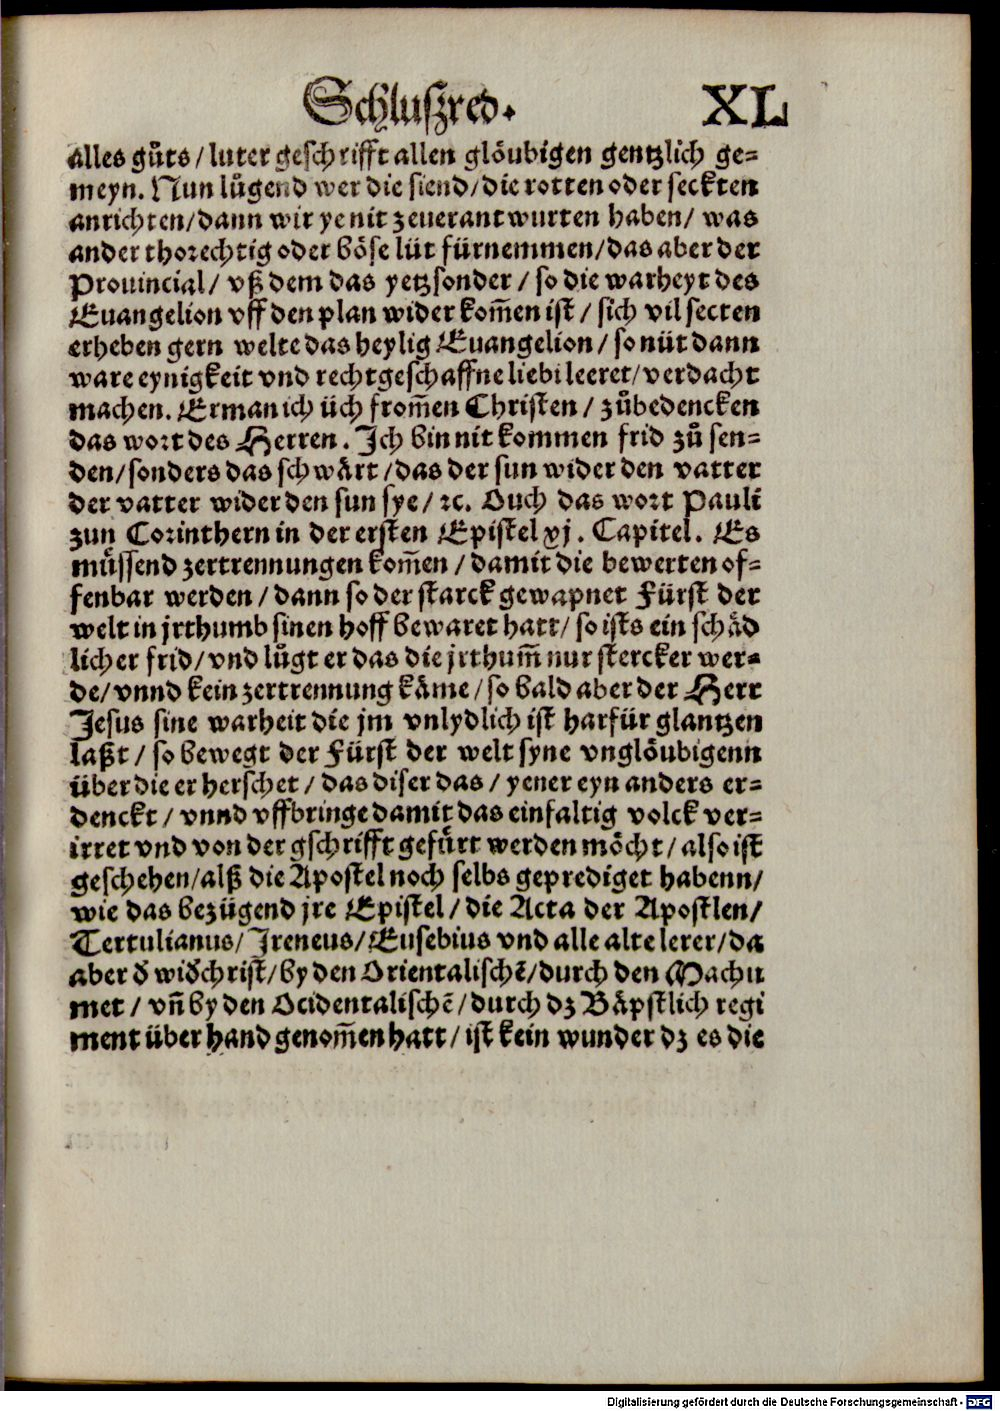 Schluszred. XL
alles gůts / luter geschrifft allen glöubigen gentzlich ge=
meyn. Nun lůgend wer die siend / die rotten oder seckten
anrichten / dann wir ye nit zeuerantwurten haben / was
ander thorechtig oder böse lüt fürnemmen / das aber der
Prouincial / vß dem das yetzsonder / so die warheyt des
Euangelion vff den plan wider kom̄en ist / sich vil secten
erheben gern welte das heylig Euangelion / so nüt dann
ware eynigkeit vnd rechtgeschaffne liebi leeret / verdacht
machen. Erman ich üch from̄en Christen / zůbedencken
das wort des Herren. Ich bin nit kommen frid zů sen=
den / sonders das schwärt / das der sun wider den vatter
der vatter wider den sun sye / ꝛc. Ouch das wort Pauli
zun Corinthern in der ersten Epistel xj. Capitel. Es
müssend zertrennungen kom̄en / damit die bewerten of=
fenbar werden / dann so der starck gewapnet Fürst der
welt in jrthumb sinen hoff bewaret hatt / so ists ein schäd
licher frid / vnd lůgt er das die jrthum̄ nur stercker wer=
de / vnnd kein zertrennung käme / so bald aber der Herr
Jesus sine warheit die jm vnlydlich ist harfür glantzen
laßt / so bewegt der Fürst der welt syne vnglöubigenn
über die er herschet / das diser das / yener eyn anders er=
denckt / vnnd vffbringe damit das einfaltig volck ver=
irret vnd von der gschrifft gefürt werden möcht / also ist
geschehen / alß die Apostel noch selbs geprediget habenn /
wie das bezügend jre Epistel / die Acta der Apostlen /
Tertulianus / Ireneus / Eusebius vnd alle alte lerer / da
aber d̓ wid̓christ / by den Orientalischē / durch den Machu
met / vn̄ by den Ocidentalischē / durch dz Bäpstlich regi
ment über hand genom̄en hatt / ist kein wunder dz es die
Digitalisierung gefördert durch die Deutsche Forschungsgemeinschaft - DFG